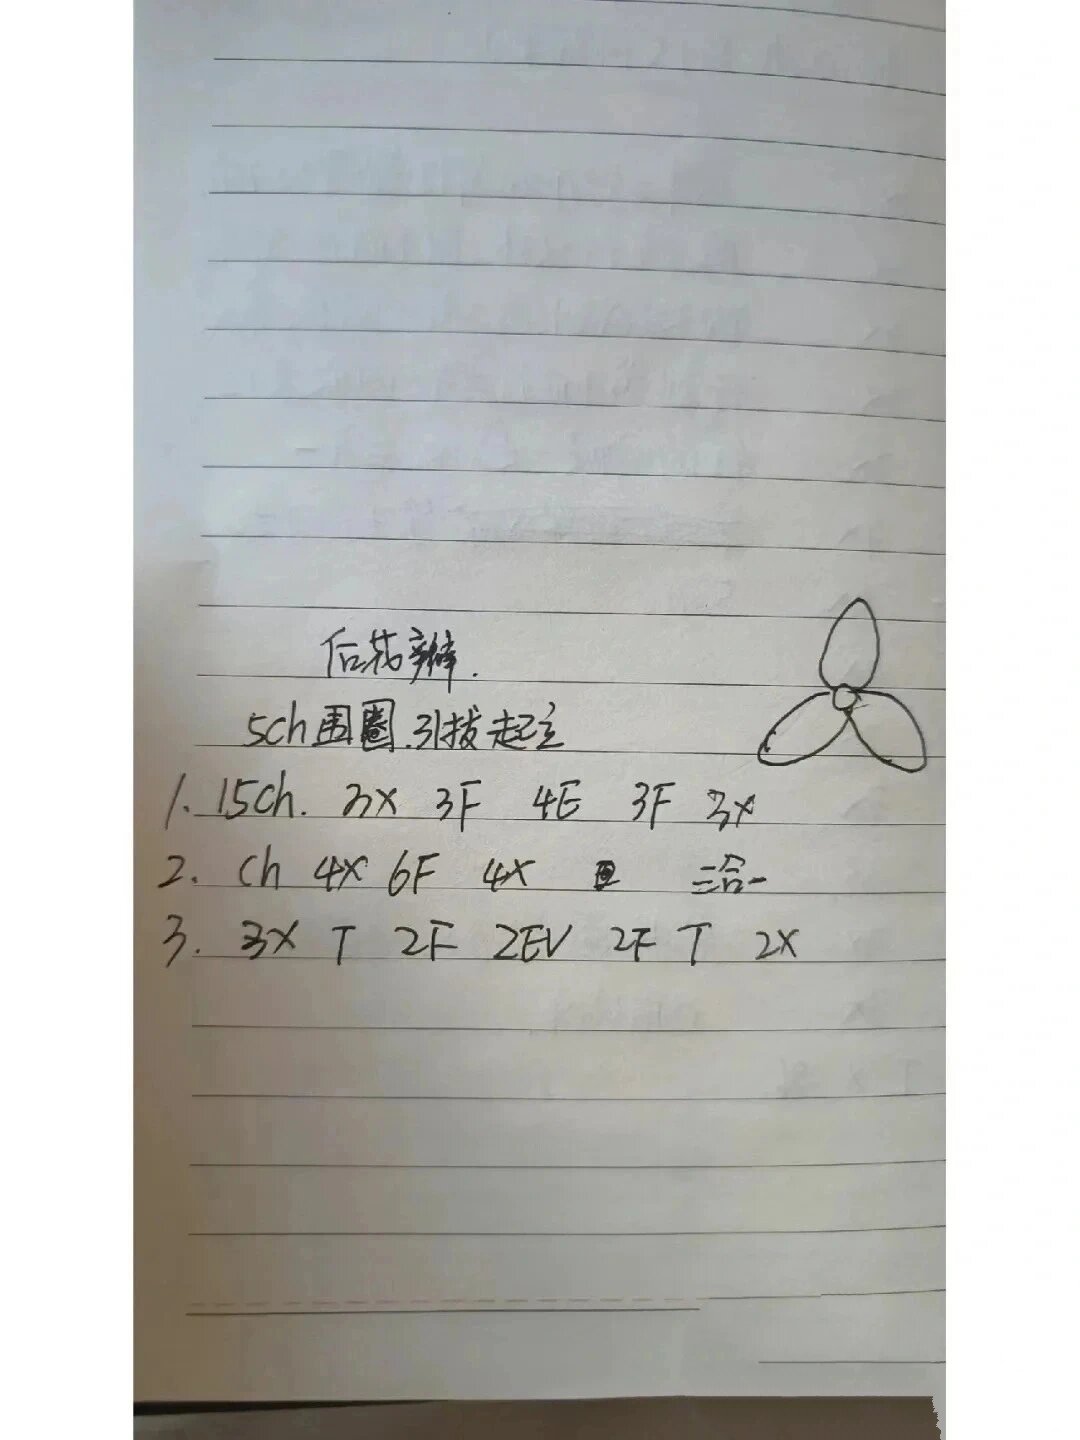 后花瓣.
5ch围圈.引拔起立
1. 15ch. 3X 3F 4E 3F 3X
2. ch 4X 6F 4X 三合一
3. 3X T 2F 2EV 2F T 2X